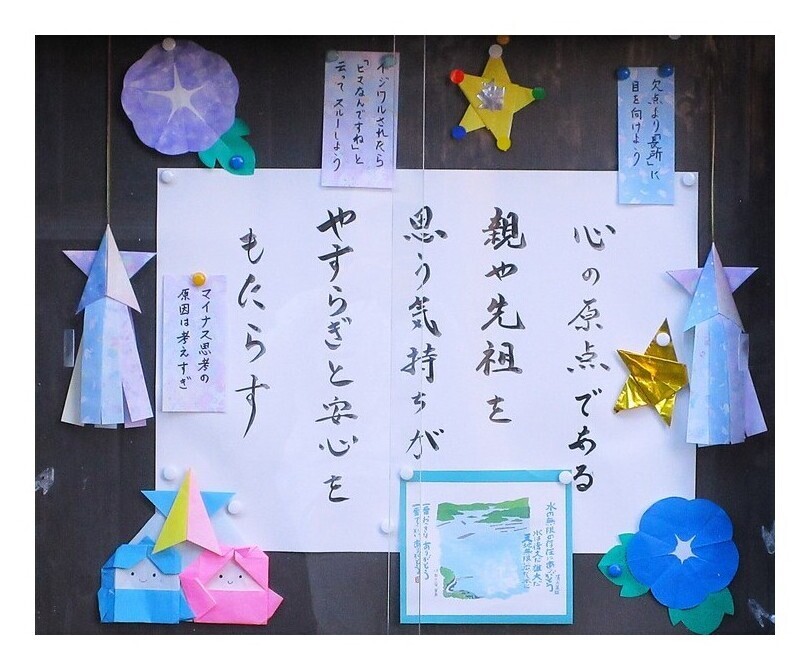 心の原点である
親や先祖を
思う気持ちが
やすらぎと安心を
もたらす
欠点より「長所」に
目を向けよう
イジワルされたら
「ヒマなんですね」と
云って スルーしよう
マイナス思考の
原因は考えすぎ